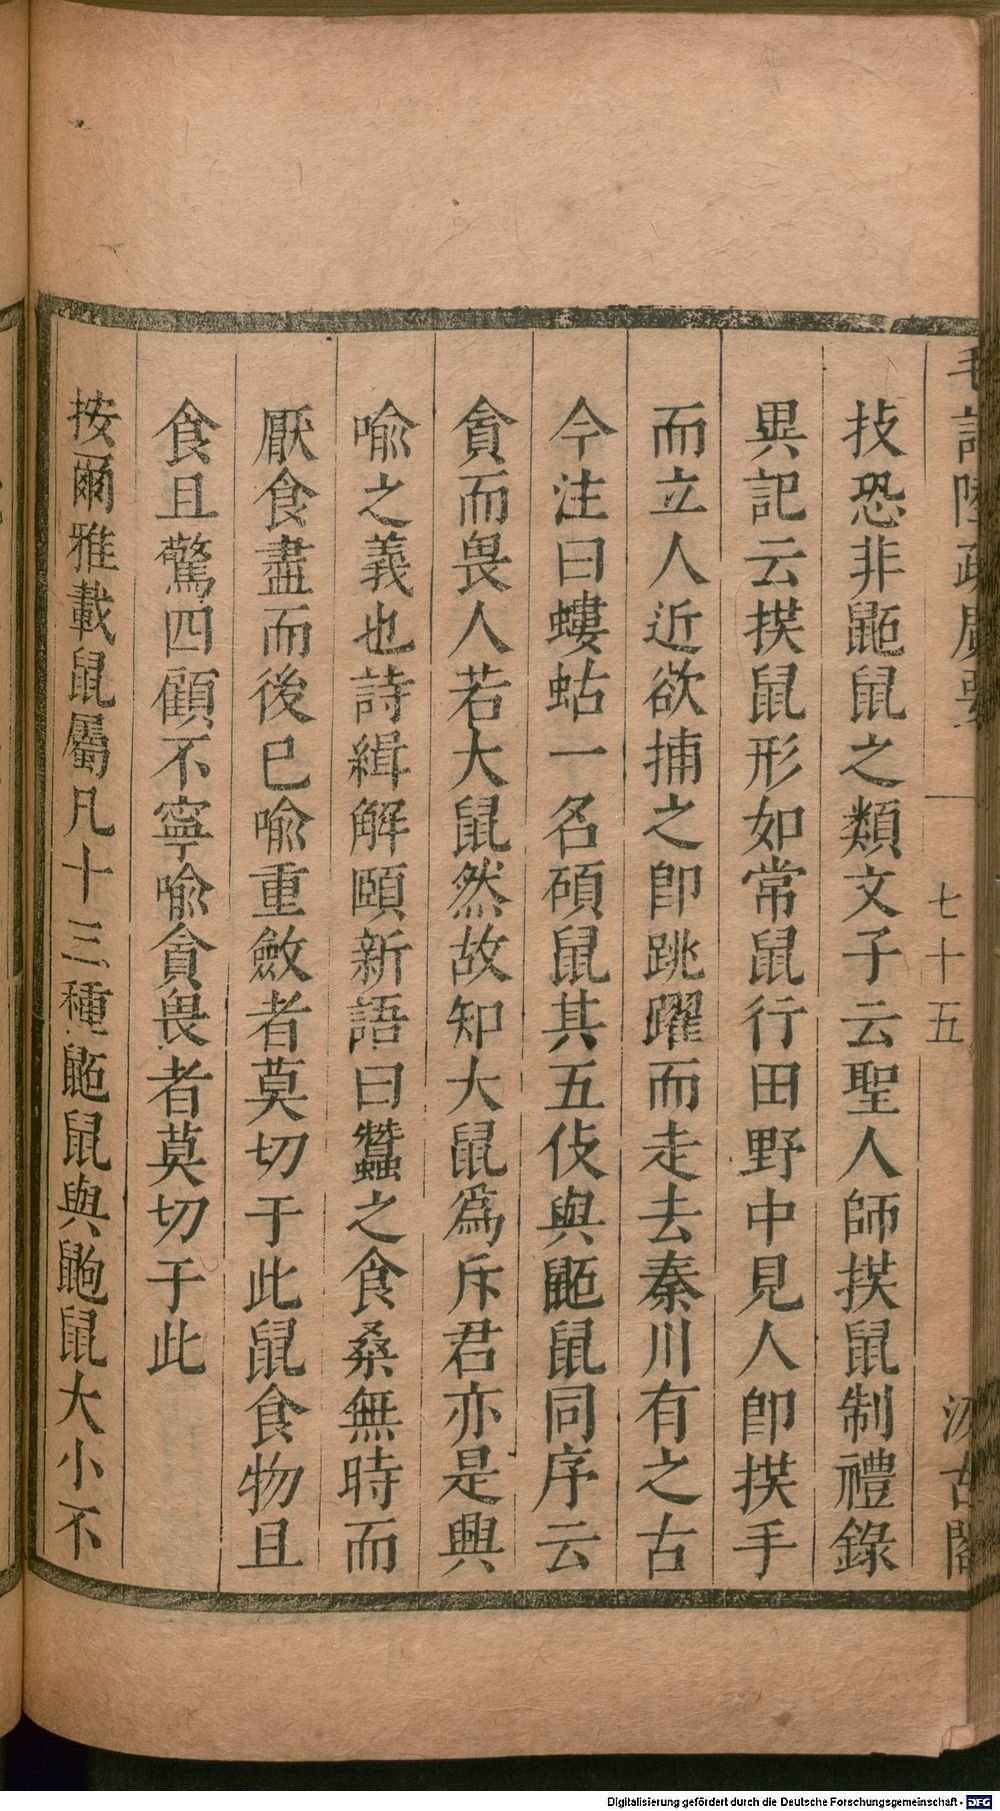 毛詩陸疏廣要
七十五
汲古閣
技恐非鼫鼠之類文子云聖人師拱鼠制禮錄
異記云拱鼠形如常鼠行田野中見人即拱手
而立人近欲捕之即跳躍而走去秦川有之古
今注曰螻蛄一名碩鼠其五伎與鼫鼠同序云
貪而畏人若大鼠然故知大鼠爲斥君亦是興
喻之義也詩緝解頤新語曰蠶之食桑無時而
厭食盡而後已喻重斂者莫切于此鼠食物且
食且驚四顧不寧喻貪畏者莫切于此
按爾雅載鼠屬凡十三種鼫鼠與鼩鼠大小不
Digitalisierung gefördert durch die Deutsche Forschungsgemeinschaft - DFG